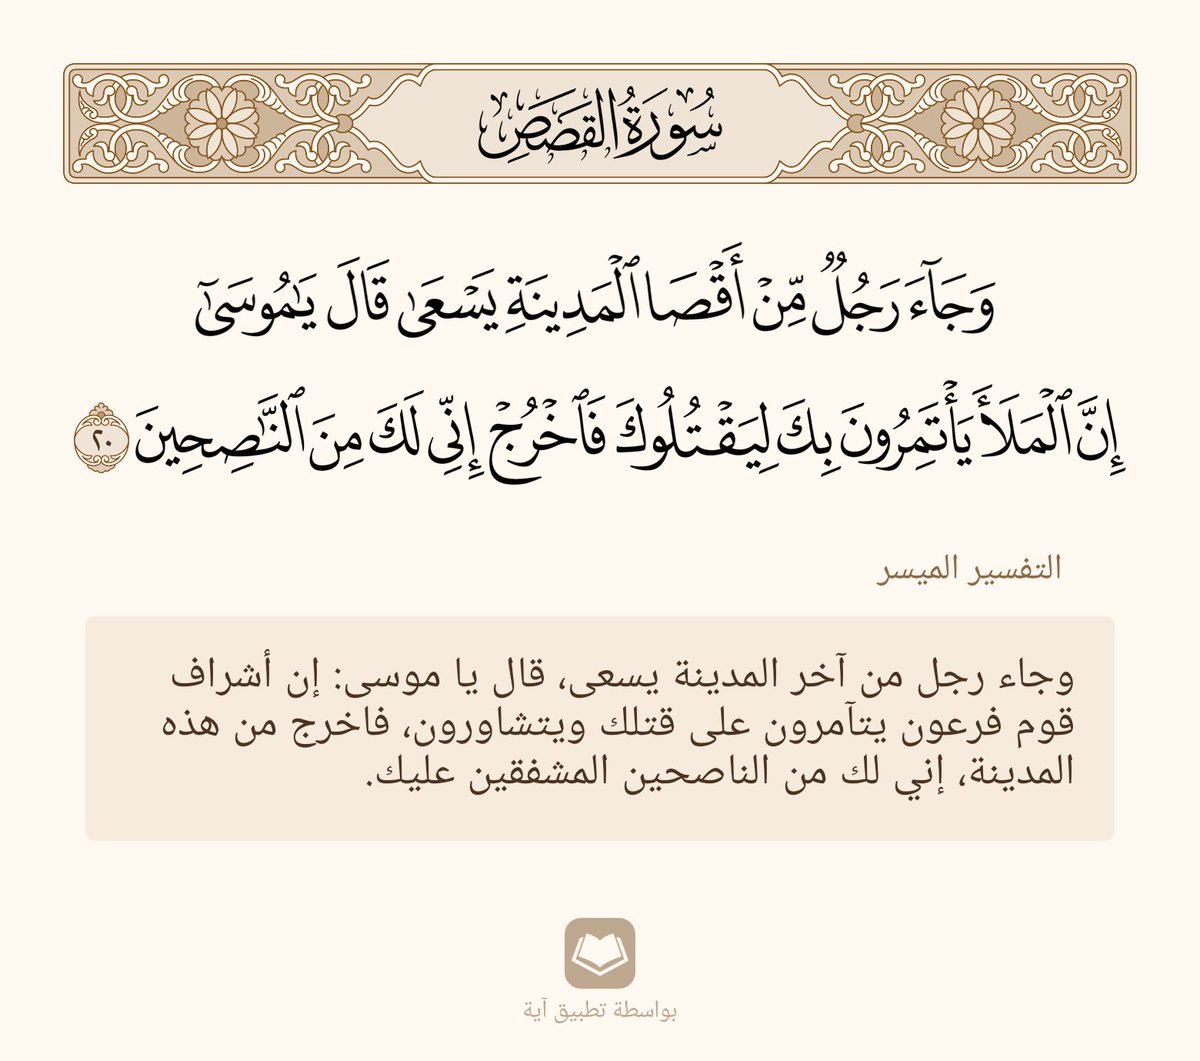 سُورَةُ القَصَصِ
وَجَآءَ رَجُلٌ مِّنۡ أَقۡصَا ٱلۡمَدِينَةِ يَسۡعَىٰ قَالَ يَٰمُوسَىٰٓ
إِنَّ ٱلۡمَلَأَ يَأۡتَمِرُونَ بِكَ لِيَقۡتُلُوكَ فَٱخۡرُجۡ إِنِّي لَكَ مِنَ ٱلنَّٰصِحِينَ ٢٠
التفسير الميسر
وجاء رجل من آخر المدينة يسعى، قال يا موسى: إن أشراف
قوم فرعون يتآمرون على قتلك ويتشاورون، فاخرج من هذه
المدينة، إني لك من الناصحين المشفقين عليك.
بواسطة تطبيق آية